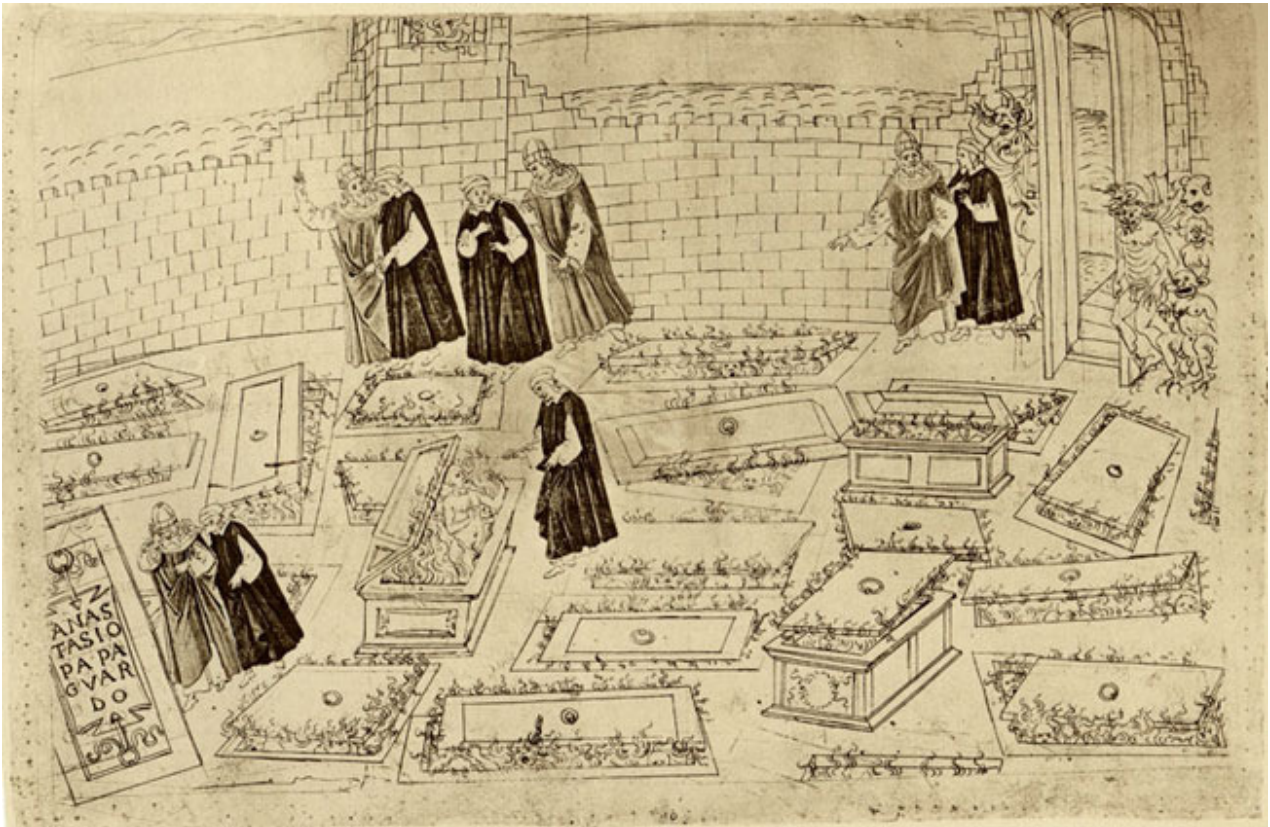 ANAS
TASIO
PA PA
GVAR
DO